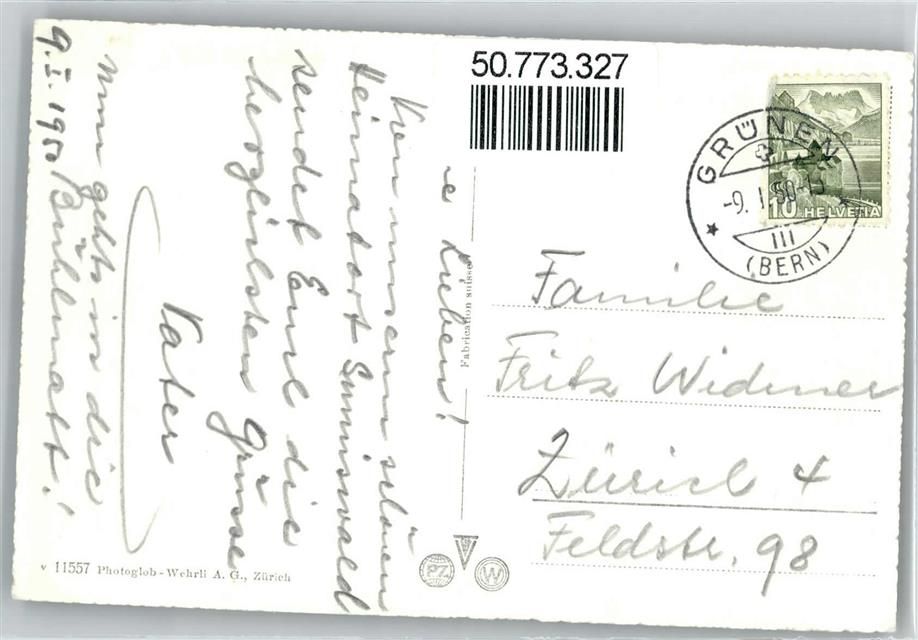 50.773.327
GRÜNEN
-9. I. 50-15
III
(BERN)
10 HELVETIA
e Lieben!
Von unserm schönen
Heimatort Sumiswald
sendet Euch die
herzlichsten Grüsse
Vater
Nun gehts in die
Bühlmatt!
9. I. 1950
Familie
Fritz Widmer
Zürich 4
Feldstr. 98
Fabrication suisse
v 11557 Photoglob-Wehrli A. G., Zürich
PZ
W